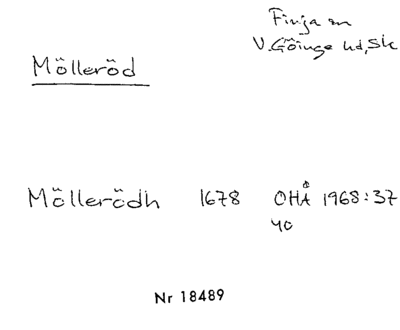 Finja sn
V. Göinge hd, Sk
Mölleröd
Möllerödh 1678 OHÅ 1968:37
40
Nr 18489